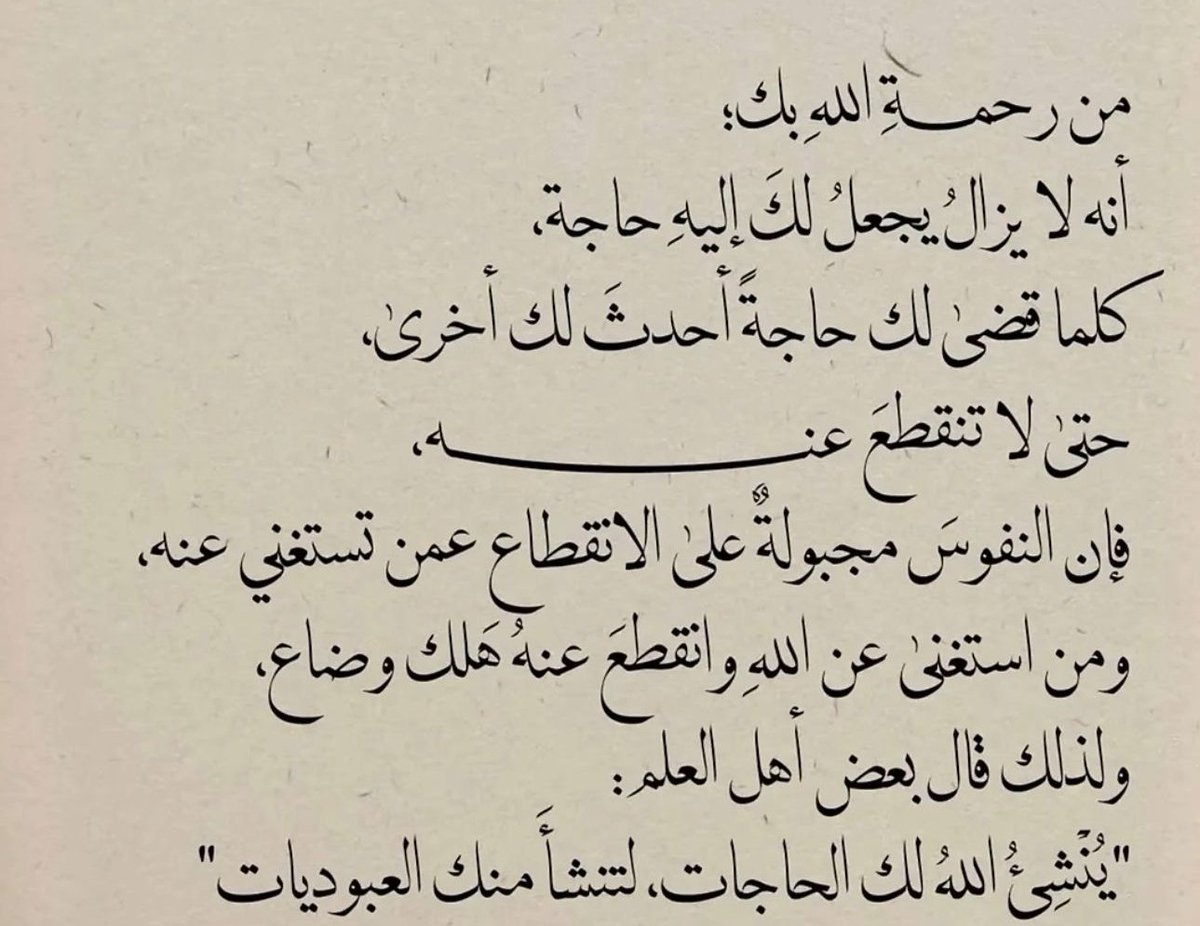 من رحمـــةِ اللهِ بك؛
أنه لا يزالُ يجعلُ لكَ إليهِ حاجة،
كلما قضىٰ لك حاجةً أحدثَ لك أخرىٰ،
حتىٰ لا تنقطعَ عنـــــــــــــه،
فإن النفوسَ مجبولةٌ علىٰ الانقطاع عمن تستغني عنه،
ومن استغنىٰ عن اللهِ وانقطعَ عنهُ هَلك وضاع،
ولذلك قال بعض أهل العلم:
"يُنْشِئُ اللهُ لك الحاجات، لتنشأَ منك العبوديات"